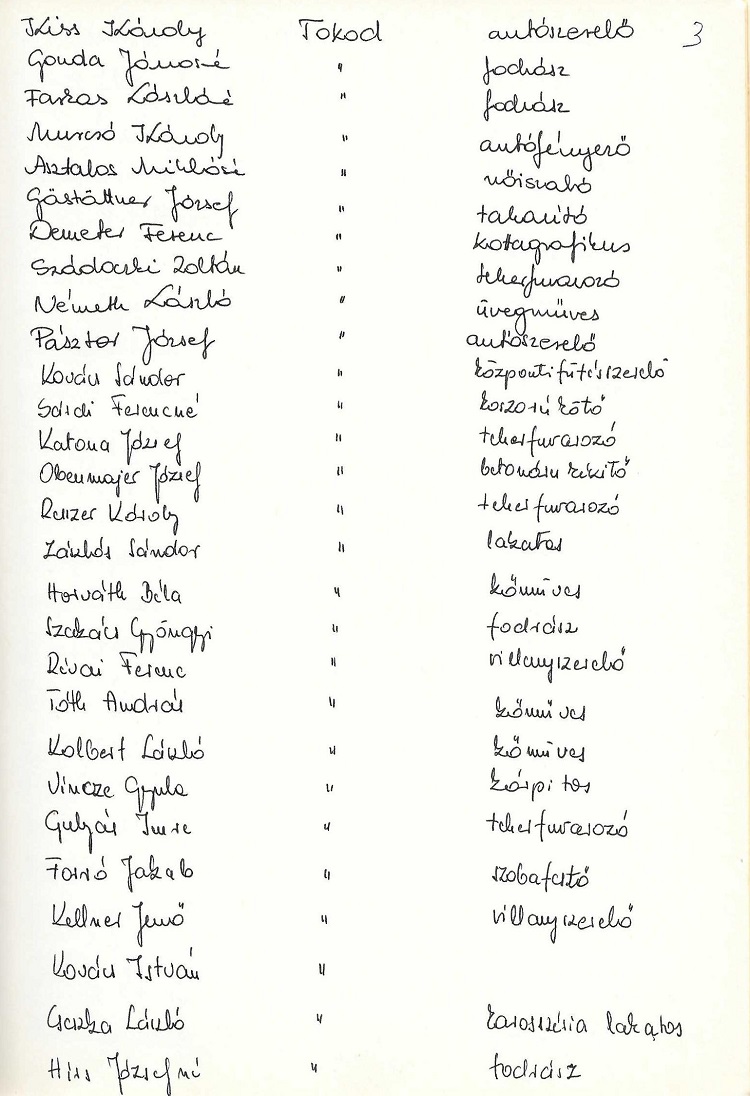 Kiss Károly Tokod autószerelő 3
Gonda Jánosné " fodrász
Farkas Lászlóné " fodrász
Murcsó Károly " autófényező
Asztalos Miklósné " nőiszabó
Gästättner József " takarító
Demeter Ferenc " kotagrafikus
Szádoczki Zoltán " teherfuvarozó
Németh László " üvegműves
Pásztor József " autószerelő
Kovács Sándor " központifűtésszerelő
Sárdi Ferencné " koszorúkötő
Katona József " teherfuvarozó
Obenmajer József " betonárukészítő
Reuzer Károly " teherfuvarozó
Sándor " lakatos
Horváth Béla " kőműves
Szakács Gyöngyi " fodrász
Révai Ferenc " villanyszerelő
Tóth András " kőműves
Kolbert László " kőműves
Vincze Gyula " kárpitos
Gulyás Imre " teherfuvarozó
Forró Jakab " szobafestő
Kellner Jenő " villanyszerelő
Kovács István "
László " karosszéria lakatos
Hiss Józsefné " fodrász